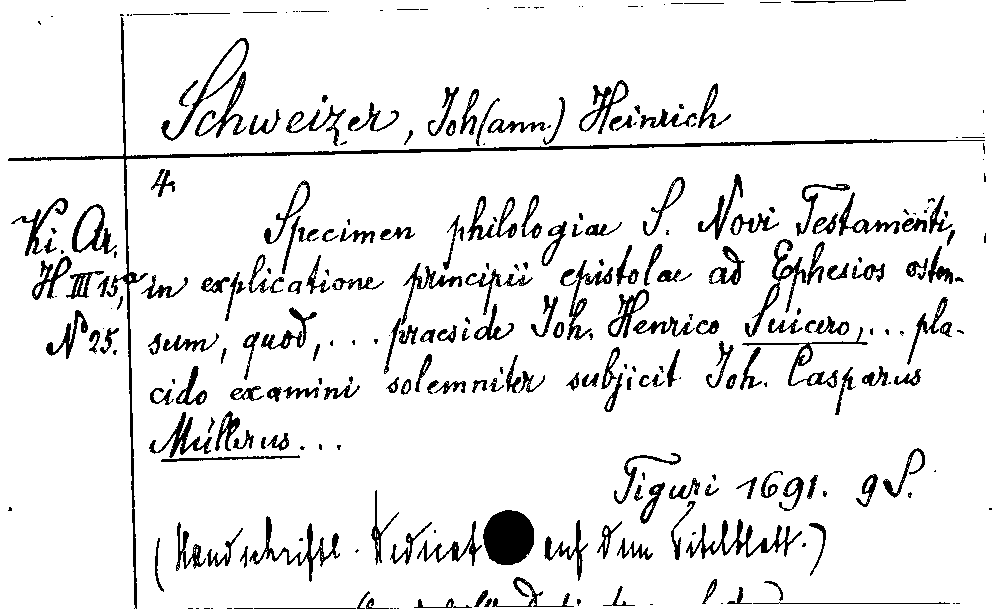 Schweizer, Joh(ann) Heinrich
4.
Ki. Ar.
H III 15,a
No 25.
Specimen philologiae S. Novi Testamenti,
in explicatione principii epistolae ad Ephesios osten-
sum, quod, ... praeside Joh. Henrico Suicero, ... pla-
cido examini solemniter subjicit Joh. Casparus
Müllerus ...
Tiguri 1691. 9 S.
(Handschriftl. Dedicat auf dem Titelblatt.)